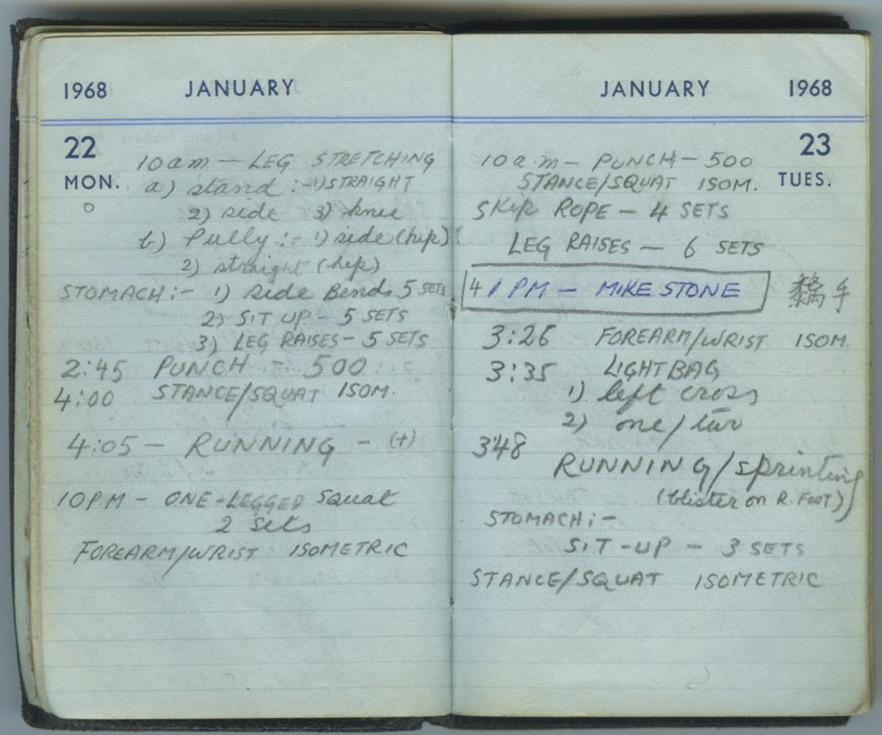 1968 JANUARY
22
MON.
10am — LEG STRETCHING
a) stand :- 1) STRAIGHT
2) side 3) knee
b) Pully :- 1) side (hip)
2) straight (hip)
STOMACH :- 1) Side Bends 5 SETS
2) SIT UP - 5 SETS
3) LEG RAISES - 5 SETS
2:45 PUNCH - 500
4:00 STANCE/SQUAT ISOM.
4:05 — RUNNING - (+)
10PM - ONE-LEGGED Squat
2 Sets
FOREARM/WRIST ISOMETRIC
JANUARY 1968
23
TUES.
10a.m - PUNCH - 500
STANCE/SQUAT ISOM.
SKIP ROPE - 4 SETS
LEG RAISES — 6 SETS
1 PM — MIKE STONE 黐手
3:26 FOREARM/WRIST ISOM.
3:35 LIGHT BAG
1) left cross
2) one/two
3:48
RUNNING/sprinting
(blister on R. FOOT)
STOMACH :-
SIT-UP - 3 SETS
STANCE/SQUAT ISOMETRIC